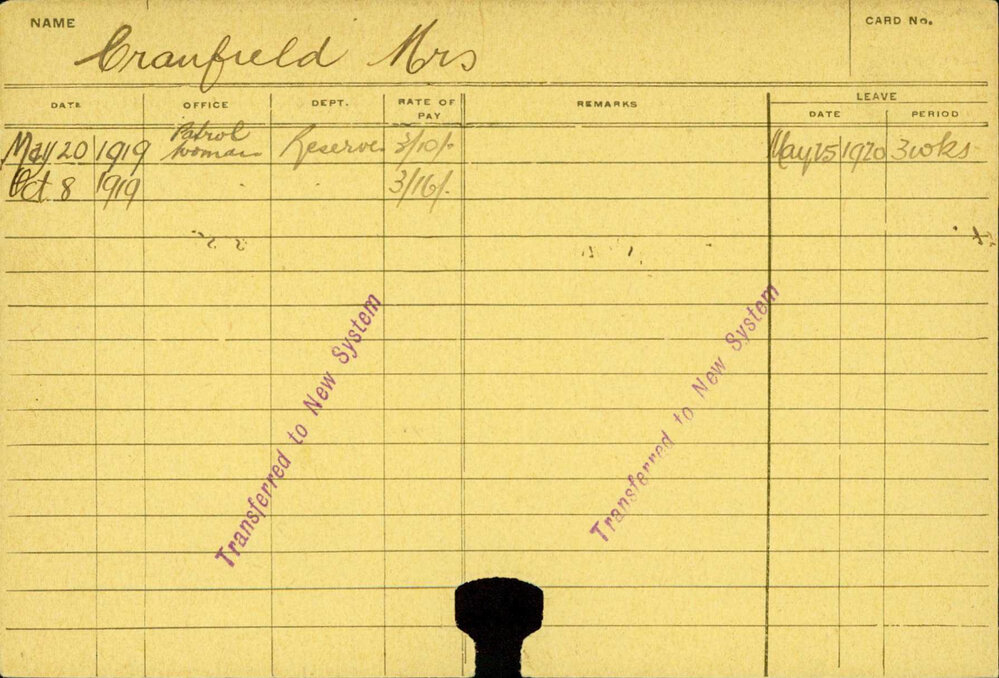 NAME Cranfield Mrs CARD No.
DATE OFFICE DEPT. RATE OF PAY REMARKS LEAVE
DATE PERIOD
May 20 1919 Patrol woman Reserve 3/10/- May 25 1920 3 wks
Oct 8 1919 3/16/-
Transferred to New System
Transferred to New System